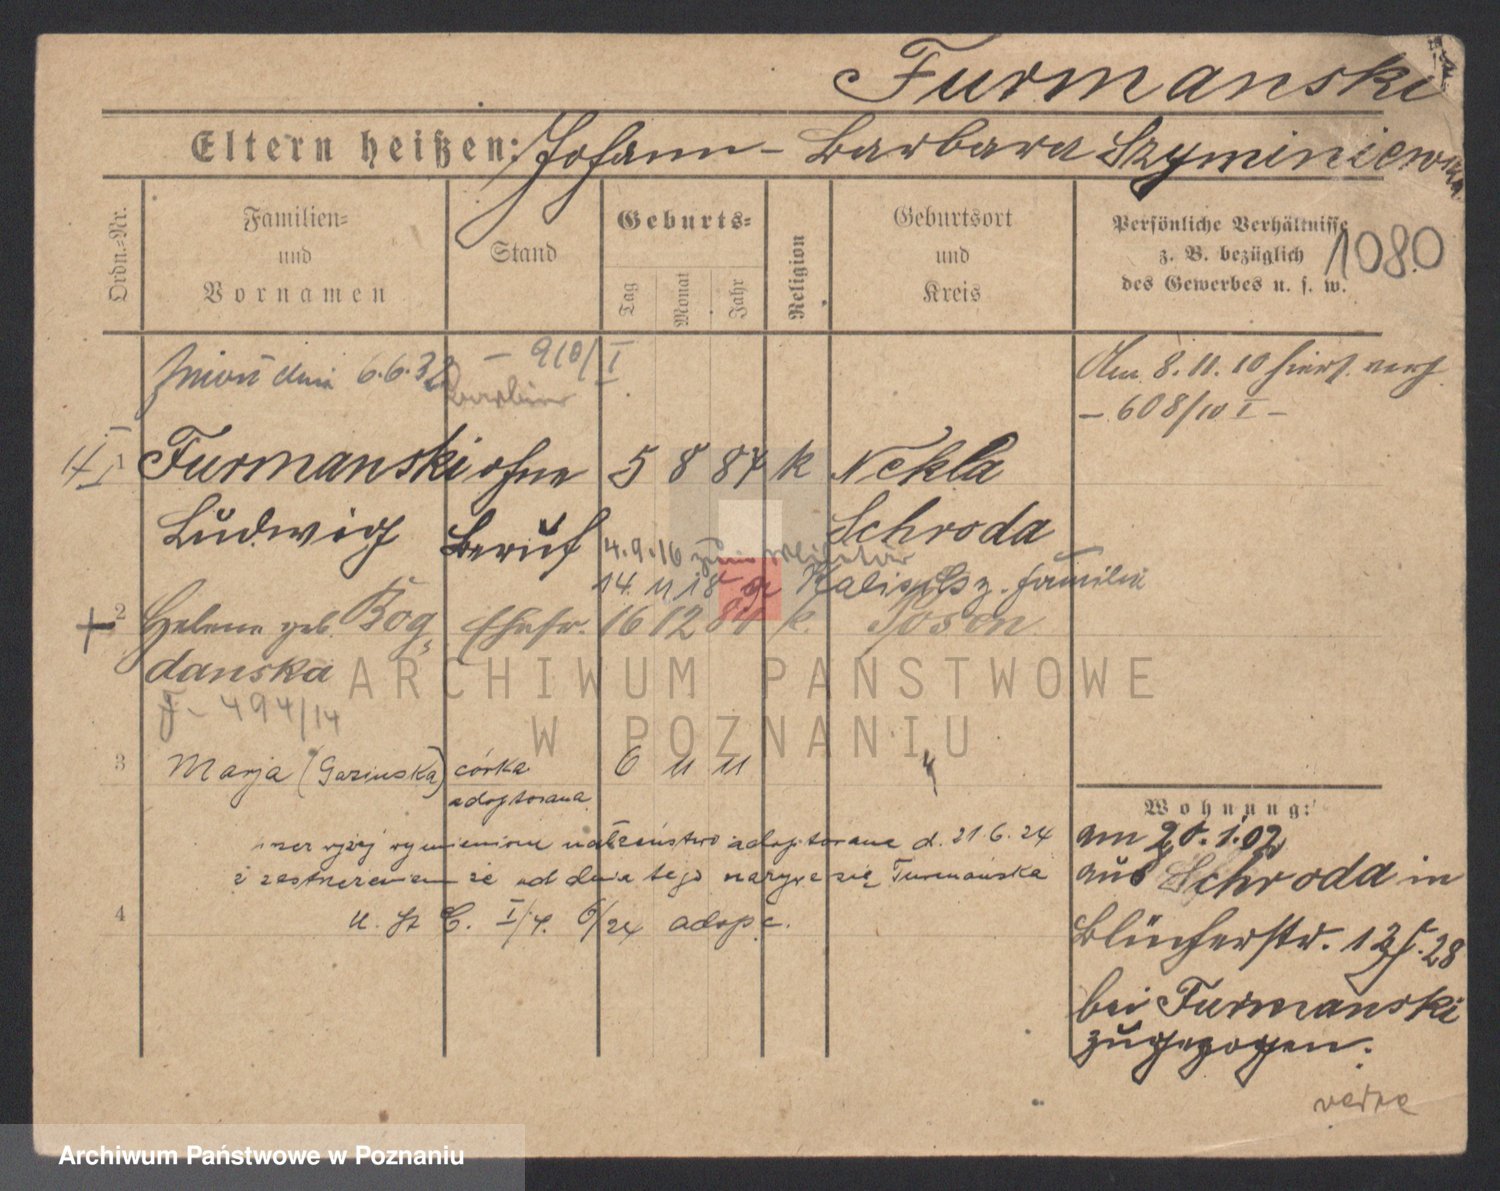 Furmanski
Eltern heißen: Johann – Barbara Szyminiewska
Ordn.-Nr.
Familien- und Vornamen
Stand
Geburts-
Tag Monat Jahr
Religion
Geburtsort und Kreis
Persönliche Verhältnisse
z. B. bezüglich
des Gewerbes u. s. w.
1080
dnia 6.6.32 – 910/I
Barbier
Am 8.11.10 hiers. verh.
– 608/10 I –
1 Furmanski ohne 5 8 87 k Nekla
Ludwig Beruf Schroda
4.9.16 zum Militär
14 11 18 Familie
2 Helene geb. Bog- Ehefr. 16 12 k. Posen
danska
494/14
3 Marja córka 6 11 11
adoptowana
małżeństwo adoptowane d. 21.6.24
że od dnia tego nazywa się Furmańska
4
6/24 adopc.
Wohnung:
am 20.1.02
aus Schroda in
Blücherstr.
bei Furmanski
zugezogen.
ARCHIWUM PAŃSTWOWE
W POZNANIU
Archiwum Państwowe w Poznaniu